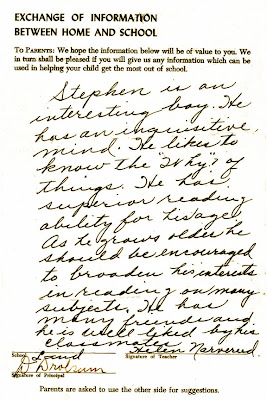 EXCHANGE OF INFORMATION
BETWEEN HOME AND SCHOOL
TO PARENTS: We hope the information below will be of value to you. We
in turn shall be pleased if you will give us any information which can be
used in helping your child get the most out of school.
Stephen is an
interesting boy. He
has an inquisitive
mind. He likes to
know the "Why? of
things. He has
superior reading
ability for his age.
As he grows older he
should be encouraged
to broaden his interests
in reading on many
subjects. He has
many friends and
he is well liked by his
classmates.
School
Helen
Signature of Teacher
D.
Signature of Principal
Parents are asked to use the other side for suggestions.